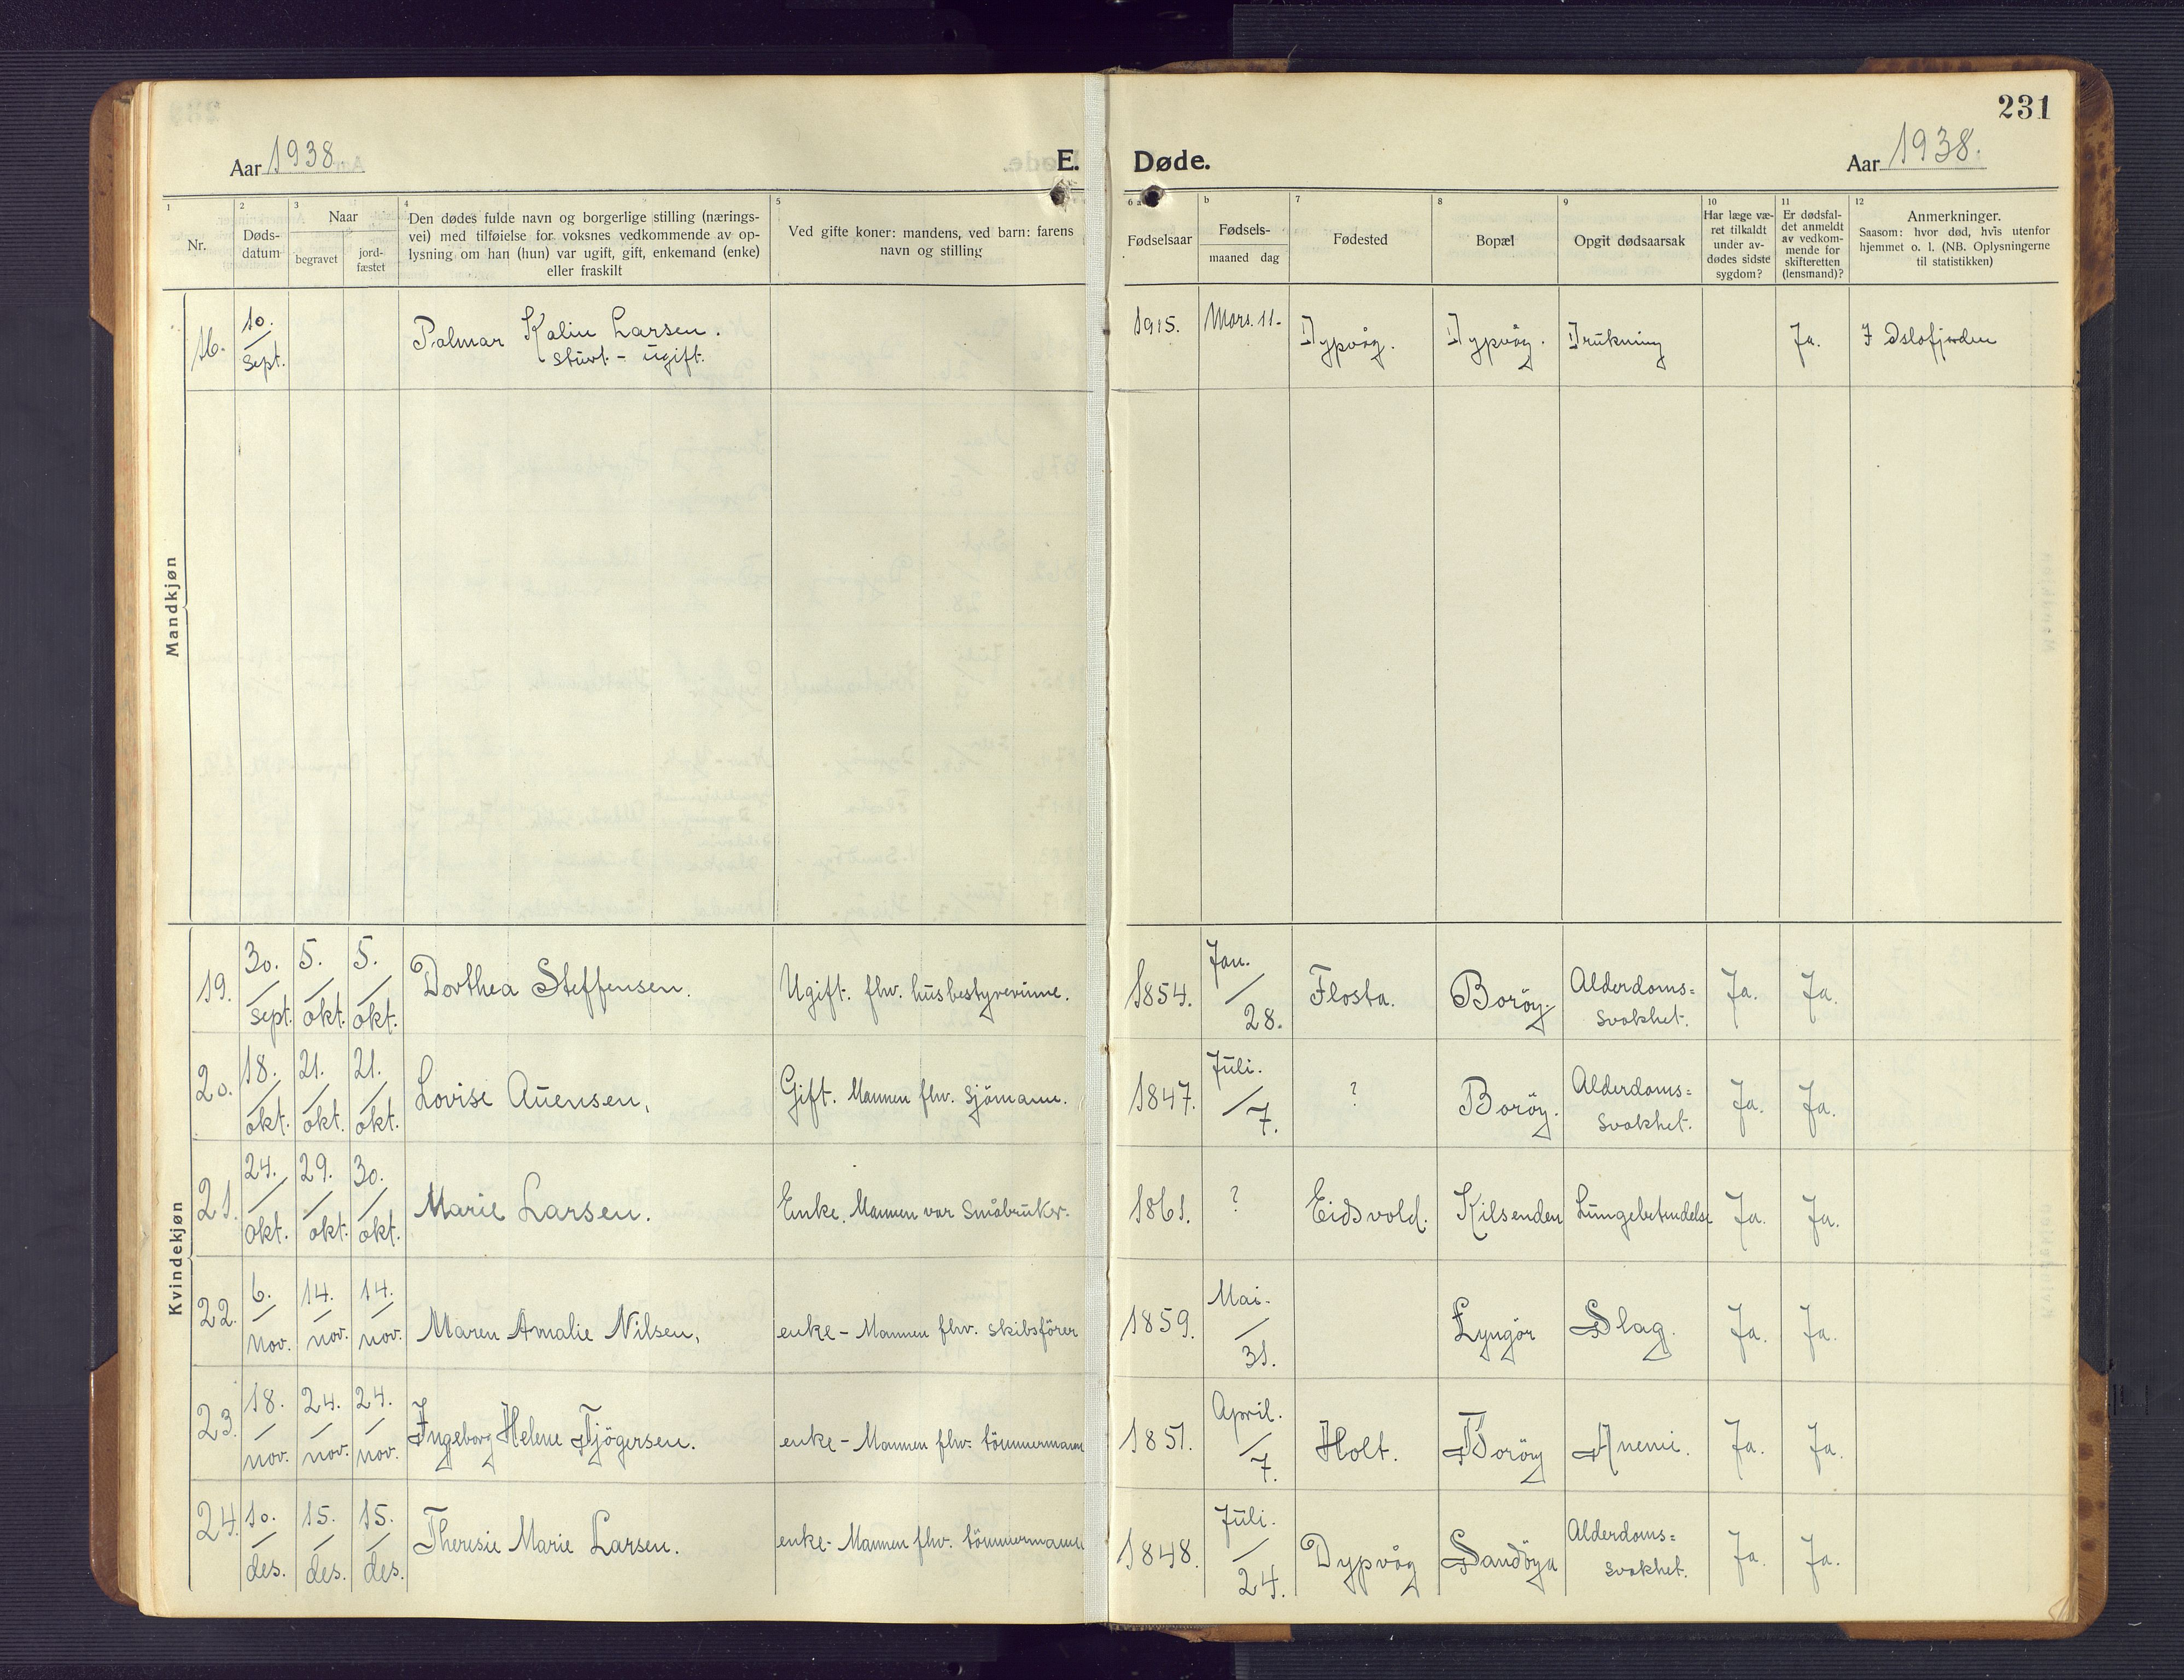 231
Aar 1938
E. Døde.
Aar 1938.
1
Nr.
2
Døds-
datum
3
Naar
begravet
jord-
fæstet
4
Den dødes fulde navn og borgerlige stilling (nærings-
vei) med tilføielse for voksnes vedkommende av op-
lysning om han (hun) var ugift, gift, enkemand (enke)
eller fraskilt
5
Ved gifte koner: mandens, ved barn: farens
navn og stilling
6 a
Fødselsaar
b
Fødsels-
maaned dag
7
Fødested
8
Bopæl
9
Opgit dødsaarsak
10
Har læge væ-
ret tilkaldt
under av-
dødes sidste
sygdom?
11
Er dødsfal-
det anmeldt
av vedkom-
mende for
skifteretten
(lensmand)?
12
Anmerkninger.
Saasom: hvor død, hvis utenfor
hjemmet o. l. (NB. Oplysningerne
til statistikken)
Mandkjøn
16.
10.
sept.
Palmar Kalin Larsen.
stuert - ugift.
1915.
Mars. 11.
Dypvåg.
Dypvåg.
Drukning
Ja.
I Oslofjorden
Kvindekjøn
19.
30.
/
sept.
5.
/
okt.
5.
/
okt.
Dorthea Steffensen.
Ugift. fhv. husbestyrerinne.
1854.
Jan.
/
28.
Flosta.
Borøy.
Alderdoms=
svakhet.
Ja.
Ja.
20.
18.
/
okt.
21.
/
okt.
21.
/
okt.
Lovise Auensen,
Gift. Mannen fhv. sjömann.
1847.
Juli.
/
7.
?
Boröy.
Alderdoms=
svakhet.
Ja.
Ja.
21.
24.
/
okt.
29.
/
okt.
30.
/
okt.
Marie Larsen.
Enke. Mannen var Småbruker.
1861.
?
Eidsvold.
Kilsenden
Lungebetendelse
Ja.
Ja.
22.
6.
/
nov.
14.
/
nov.
14.
/
nov.
Maren Amalie Nilsen,
enke - Mannen fhv. skibsförer
1859.
Mai.
/
31.
Lyngör
Slag.
Ja.
Ja.
23.
18.
/
nov.
24.
/
nov.
24.
/
nov.
Ingeborg Helene Tjögersen.
enke - Mannen fhv. tömmermann
1851.
April.
/
7.
Holt.
Boröy
Anemi.
Ja.
Ja.
24.
10.
/
des.
15.
/
des.
15.
/
des.
Theresie Marie Larsen.
enke - Mannen fhv. tömmermann
1848.
Juli.
/
24.
Dypvåg
Sandöya
Alderdoms=
svakhet.
Ja.
Ja.